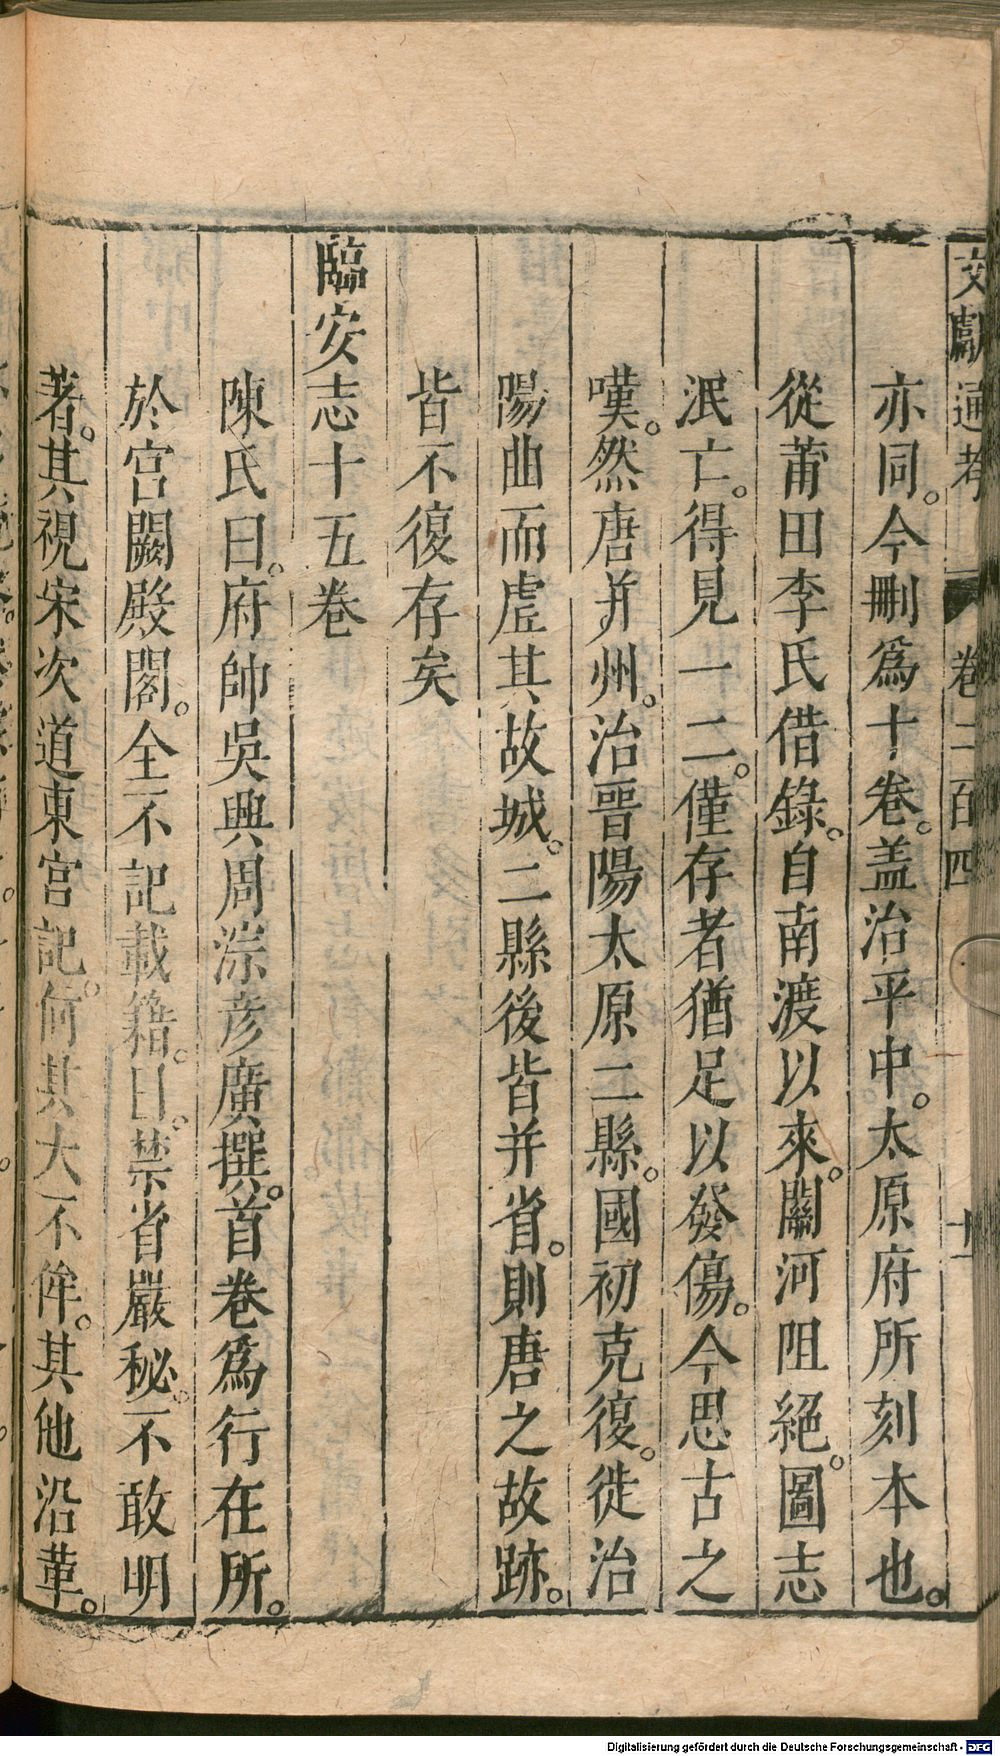 文獻通考 卷二百四 十一
亦同。今刪為十卷。盖治平中。太原府所刻本也。
從莆田李氏借錄。自南渡以來。關河阻絕。圖志
泯亡。得見一二。僅存者猶足以發傷。今思古之
嘆。然唐并州。治晉陽太原二縣。國初克復。徙治
陽曲而虛其故城。二縣後皆并省。則唐之故跡。
皆不復存矣
臨安志十五卷
陳氏曰。府帥吳興周淙彦廣撰。首卷為行在所。
於宮闕殿閣。全不記載籍。曰。禁省嚴秘。不敢明
著。其視宋次道東宮記。何其大不侔。其他沿革。
Digitalisierung gefördert durch die Deutsche Forschungsgemeinschaft - DFG